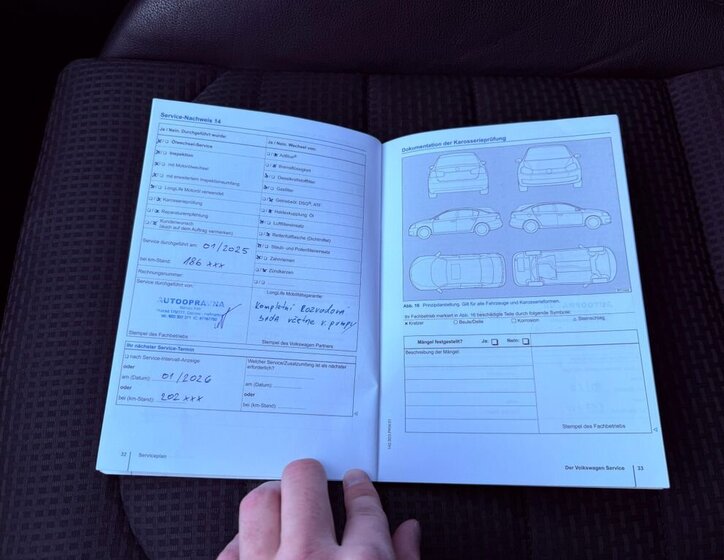 Service-Nachweis 14
Ja / Nein. Durchgeführt wurde:
Ölwechsel-Service
Inspektion
mit Motorölwechsel
mit erweitertem Inspektionsumfang
LongLife Motoröl verwendet
Karosserieprüfung
Reparaturempfehlung
Kundenwunsch
(auch auf dem Auftrag vermerken)
Service durchgeführt am: 01/2025
bei km-Stand: 186 xxx
Rechnungsnummer:
Service durchgeführt von:
AUTOOPRAVNA
Stempel des Fachbetriebs
Ja / Nein. Wechsel von:
AdBlue®
Bremsflüssigkeit
Dieselkraftstofffilter
Gasfilter
Getriebeöl: DSG®, ATF
Haldexkupplung: Öl
Luftfiltereinsatz
Reifenfüllflasche (Dichtmittel)
Staub- und Pollenfiltereinsatz
Zahnriemen
Zündkerzen
LongLife Mobilitätsgarantie:
kompletní Rozvodová
sada včetně v. pumpy
Stempel des Volkswagen-Partners
Ihr nächster Service-Termin
nach Service-Intervall-Anzeige
oder
am (Datum): 01/2026
oder
bei (km-Stand): 202 xxx
Welcher Service/Zusatzumfang ist als nächster
erforderlich?
am (Datum):
oder
bei (km-Stand):
32 Serviceplan
Dokumentation der Karosserieprüfung
Abb. 16 Prinzipdarstellung. Gilt für alle Fahrzeuge und Karosserieformen.
Ihr Fachbetrieb markiert in Abb. 16 beschädigte Teile durch folgende Symbole:
× Kratzer ○ Beule/Delle □ Korrosion △ Steinschlag
Mängel festgestellt? Ja: Nein:
Beschreibung der Mängel:
Stempel des Fachbetriebs
Der Volkswagen Service 33